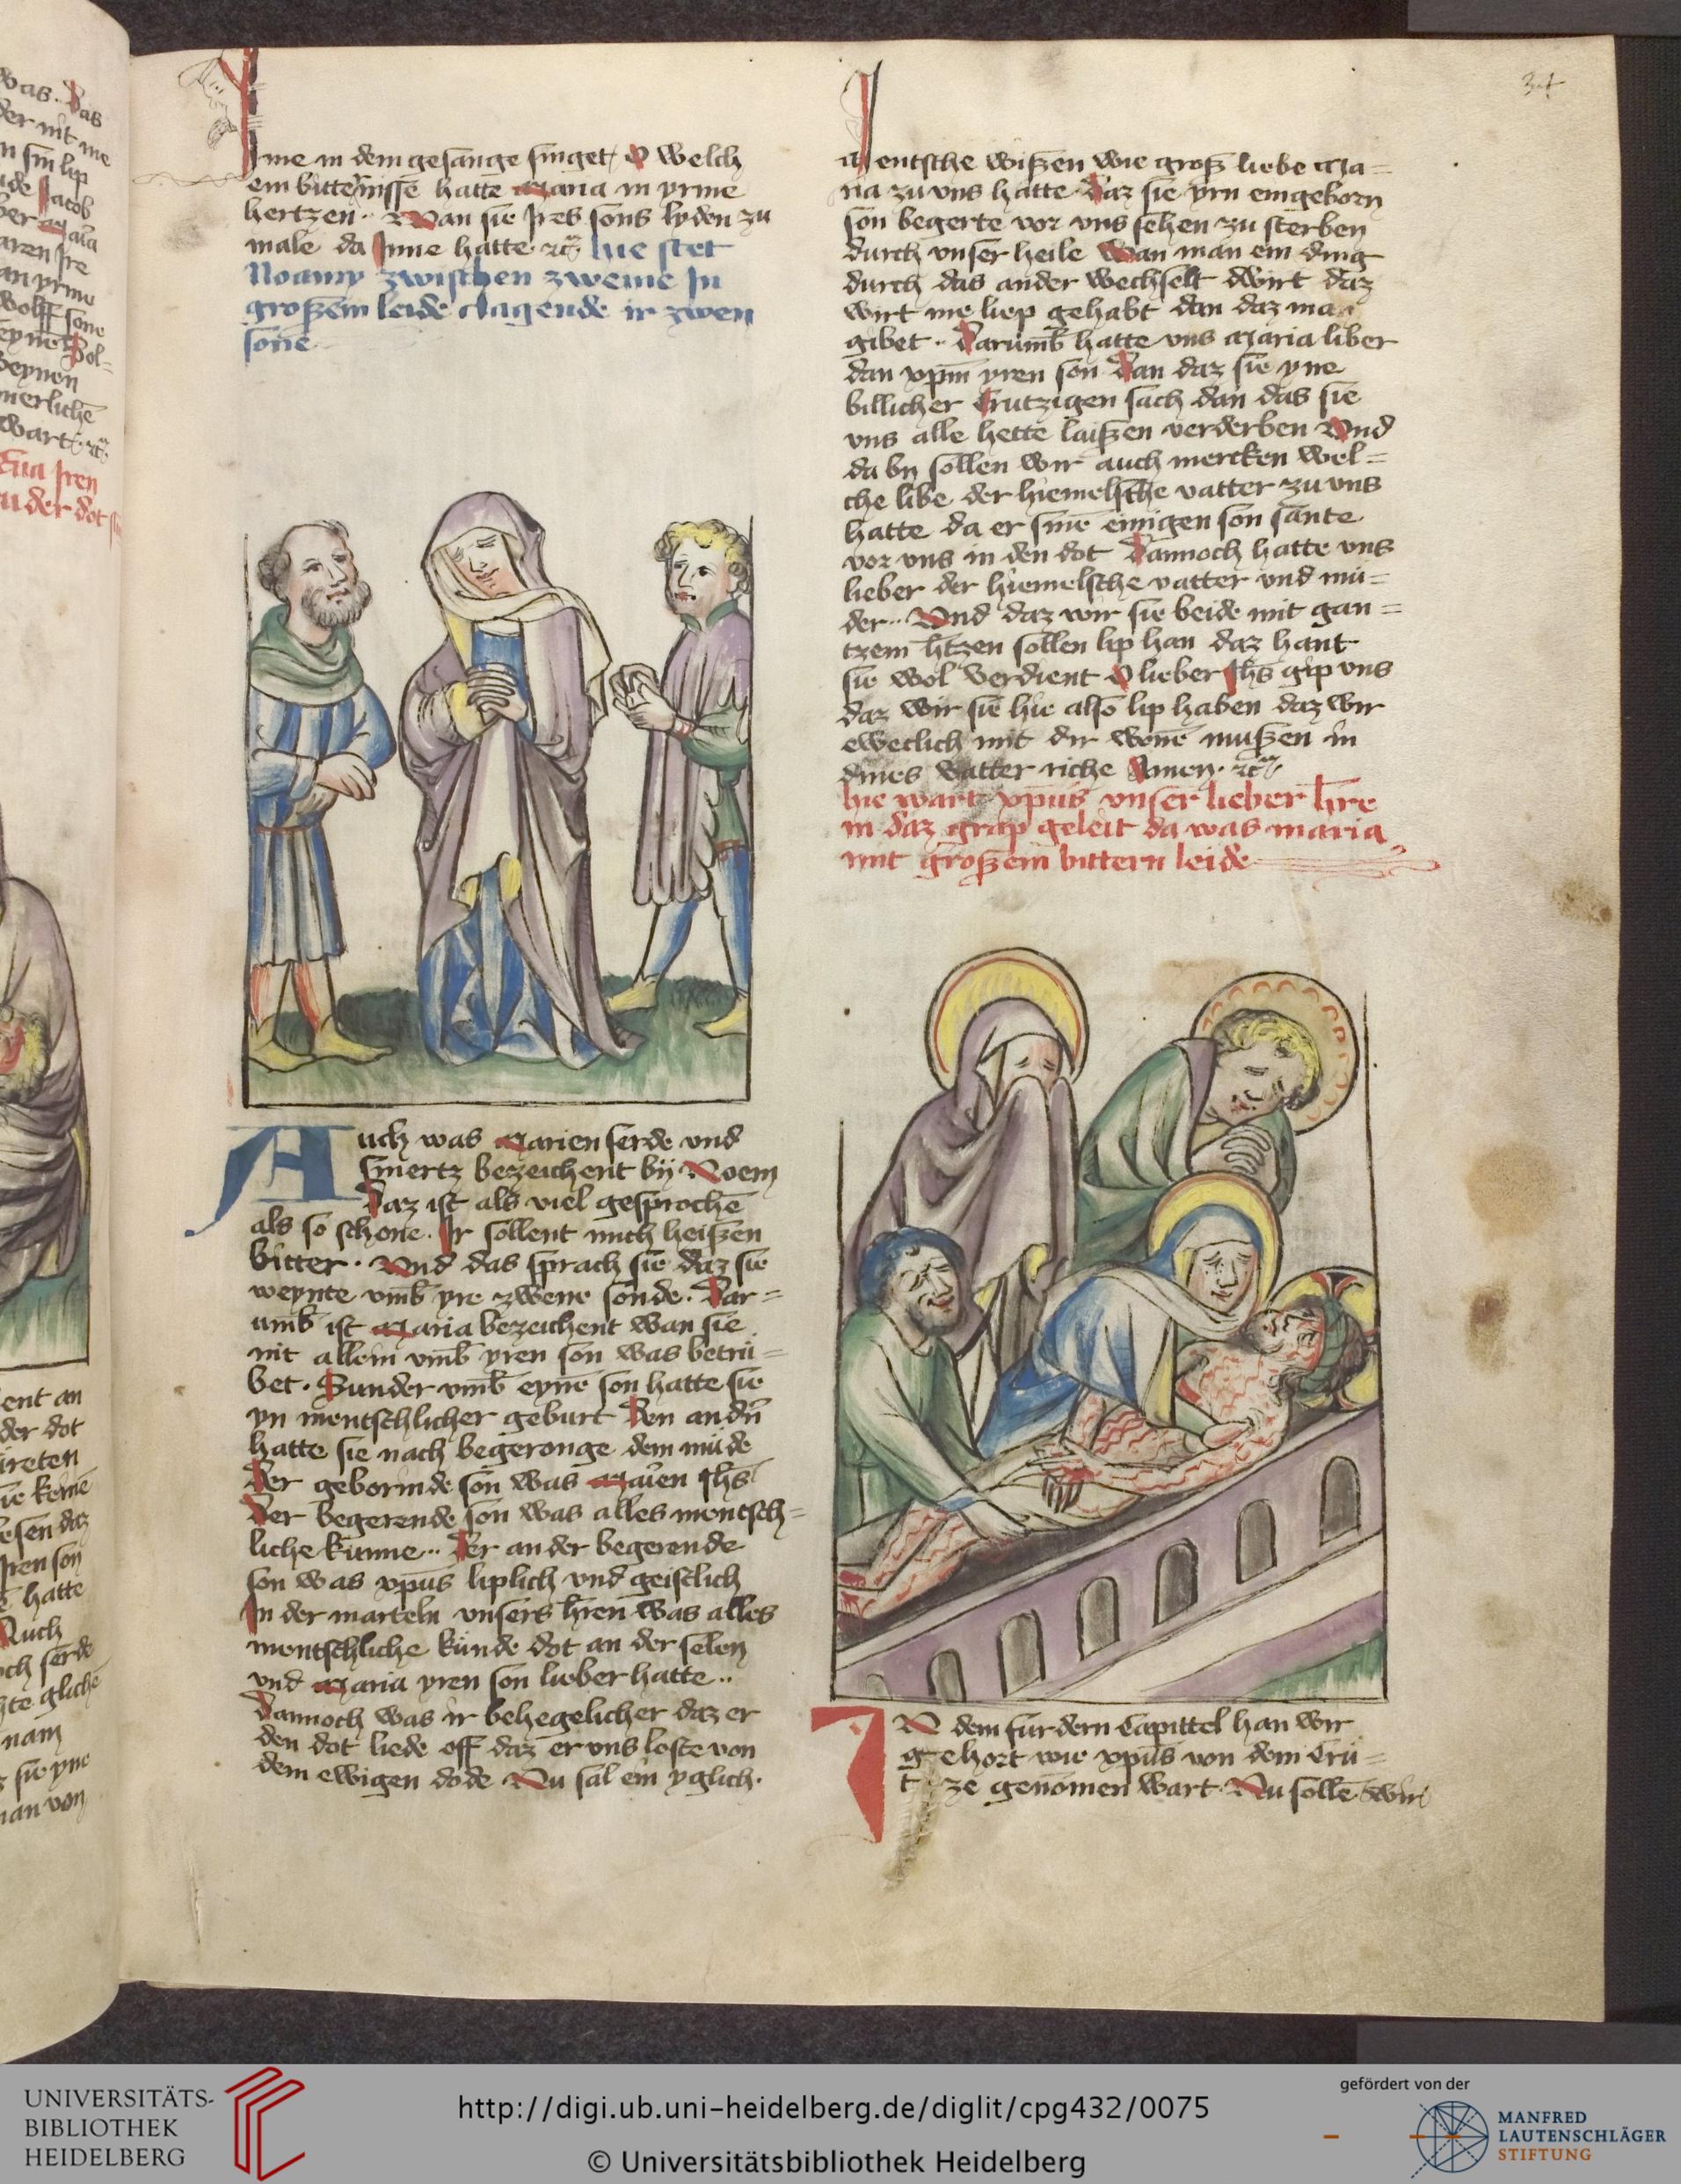 34
Ime in dem gesange singet O welch
ein bitternisse hatte Maria in yrme
hertzen Wan sie Ires sons lyden zu
male da Inne hatte rc̄ hie stet
Noamy zwischen zweine In
großem leide clagende ir zwen
sone
Auch was Marien serde und
smertz bezeichent bÿ Noem
Daz ist als viel gesprochē
als so schone. Ir sollent mich heißen
bitter. Und das sprach sie daz sie
weynte vmb yre zwene sonde. Dar=
umb ist Maria bezeichent wan sie
nit allein vmb yren son was betru=
bet. Sunder vmb eynē son hatte sie
yn mentschlicher geburt Den andn̄
hatte sie nach begeronge dem mude
Der geborinde son was Marien Ihs
Der begerende son was alles mentsch=
liche kunne. Der ander begerende
son was xpus liplich und geistlich
In der marteln unsers hren was alles
mentschliche kunde dot an der selen
und Maria yren son lieber hatte
Dannoch was ir behegelicher daz er
den dot liede off daz er uns loste von
dem ewigen dode Nu sal ein yglich
mentsche wißen wie groß liebe Ma=
ria zu uns hatte Daz sie yrn eingeborn
son begerte vor uns sehen zu sterben
durch unser heile Wan man ein ding
durch das ander wechselt dwirt daz
wirt me liep gehabt dan daz man
gibet. Darumb hatte uns Maria liber
dan xpm yren son Dan daz sie yne
billicher Crutzigen sach dan das sie
uns alle hette laißen verderben Und
da by sollen wir auch mercken wel=
che libe der hiemelsche vatter zu uns
hatte da er sinē einigen son sante
vor uns in den dot Dannoch hatte uns
lieber der hiemelsche vatter und mu=
der. Und daz wir sie beide mit gan=
tzem htzen sollen lip han daz hant
sie wol verdient O lieber Ihs gip uns
daz wir sie hie also lip haben daz wir
eweclich mit dir wonē mußen in
dines vatter riche Amen. rc̄
hie wart xpus unser lieber hre
in daz grap geleit da was maria
mit großem bittern leide
IN dem furdern Capittel han wir
gehort wie xpus von dem Cru=
tze genomen wart Nu sollē wir
UNIVERSITÄTS-
BIBLIOTHEK
HEIDELBERG
http://digi.ub.uni-heidelberg.de/diglit/cpg432/0075
© Universitätsbibliothek Heidelberg
gefördert von der
MANFRED
LAUTENSCHLÄGER
STIFTUNG